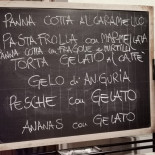 PANNA COTTA AL CARAMELLO
PASTAFROLLA con MARMELLATA
PANNA COTTA con FRAGOLE o MIRTILLI
TORTA GELATO AL CAFFÈ
GELO di ANGURIA
PESCHE con GELATO
ANANAS con GELATO